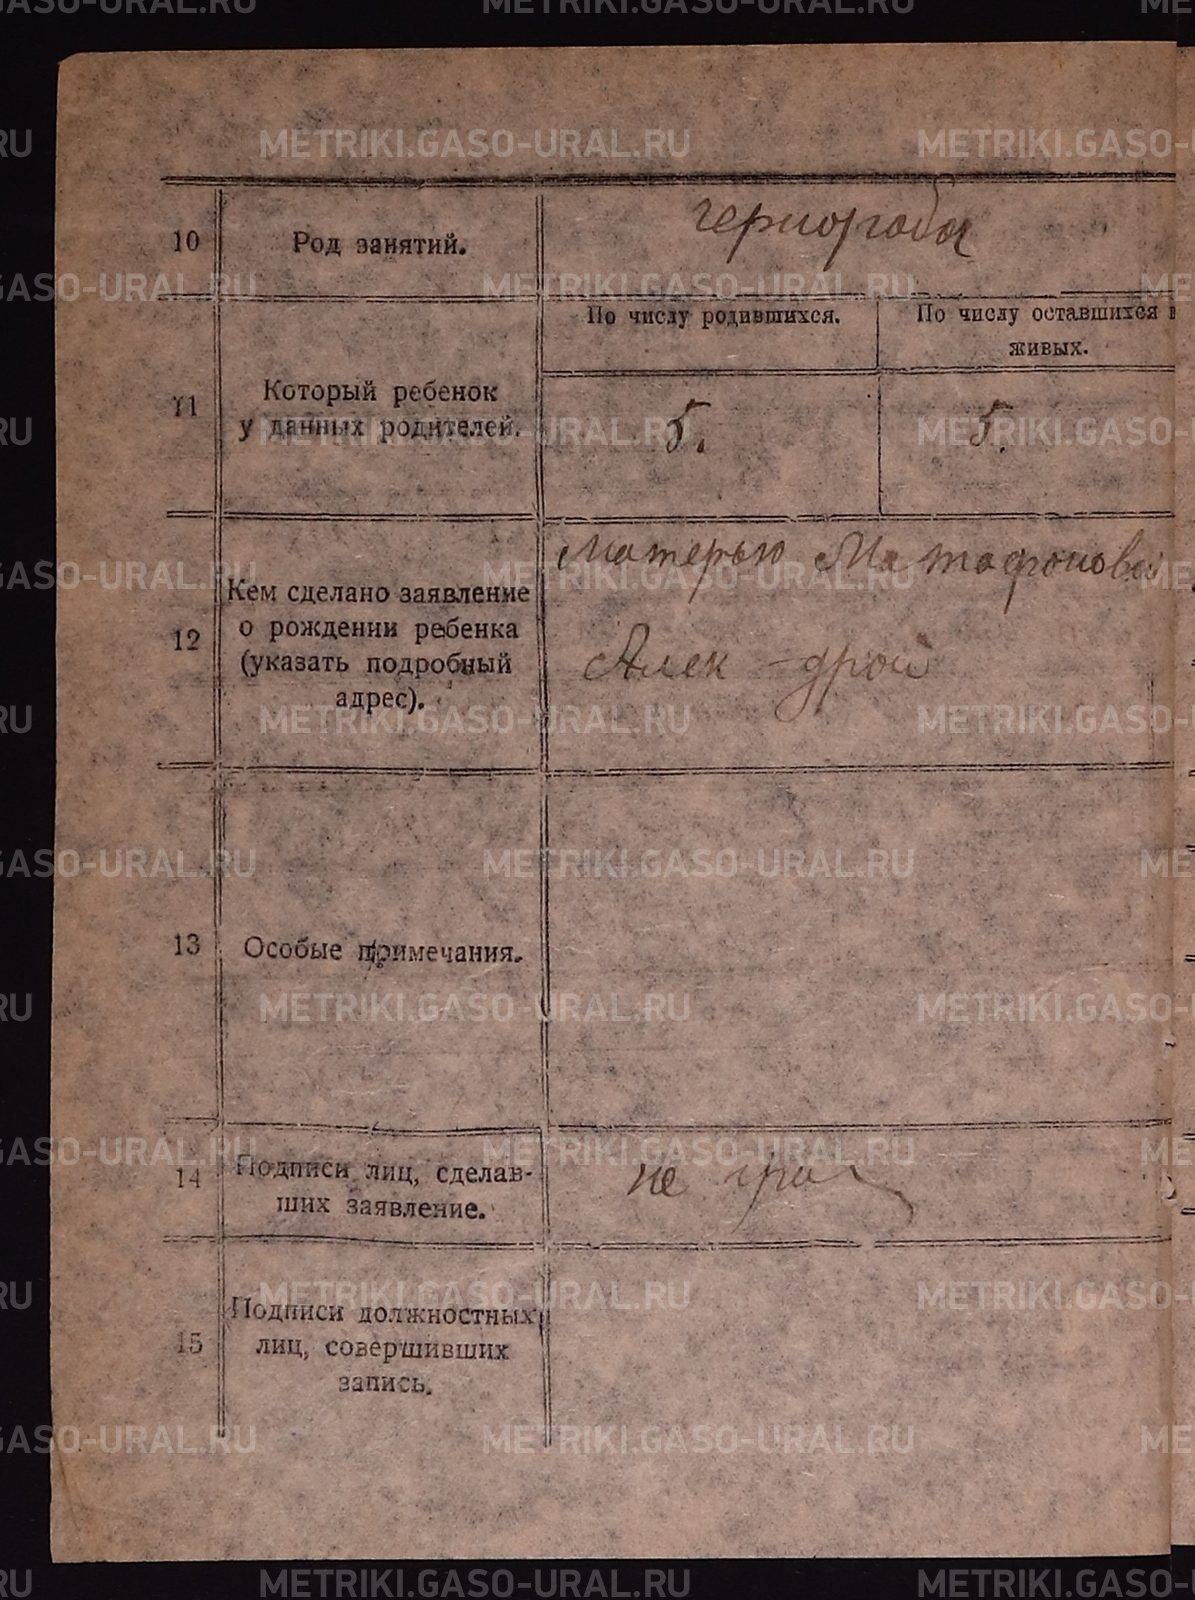 10 Род занятий. чернораб
По числу родившихся. По числу оставшихся в
живых.
11 Который ребенок
у данных родителей. 5. 5.
Матерью Матафоновой
12 Кем сделано заявление
о рождении ребенка
(указать подробный Алек-дрой
адрес).
13 Особые примечания.
14 Подписи лиц, сделав- не гра
ших заявление.
15 Подписи должностных
лиц, совершивших
запись.
METRIKI.GASO-URAL.RU